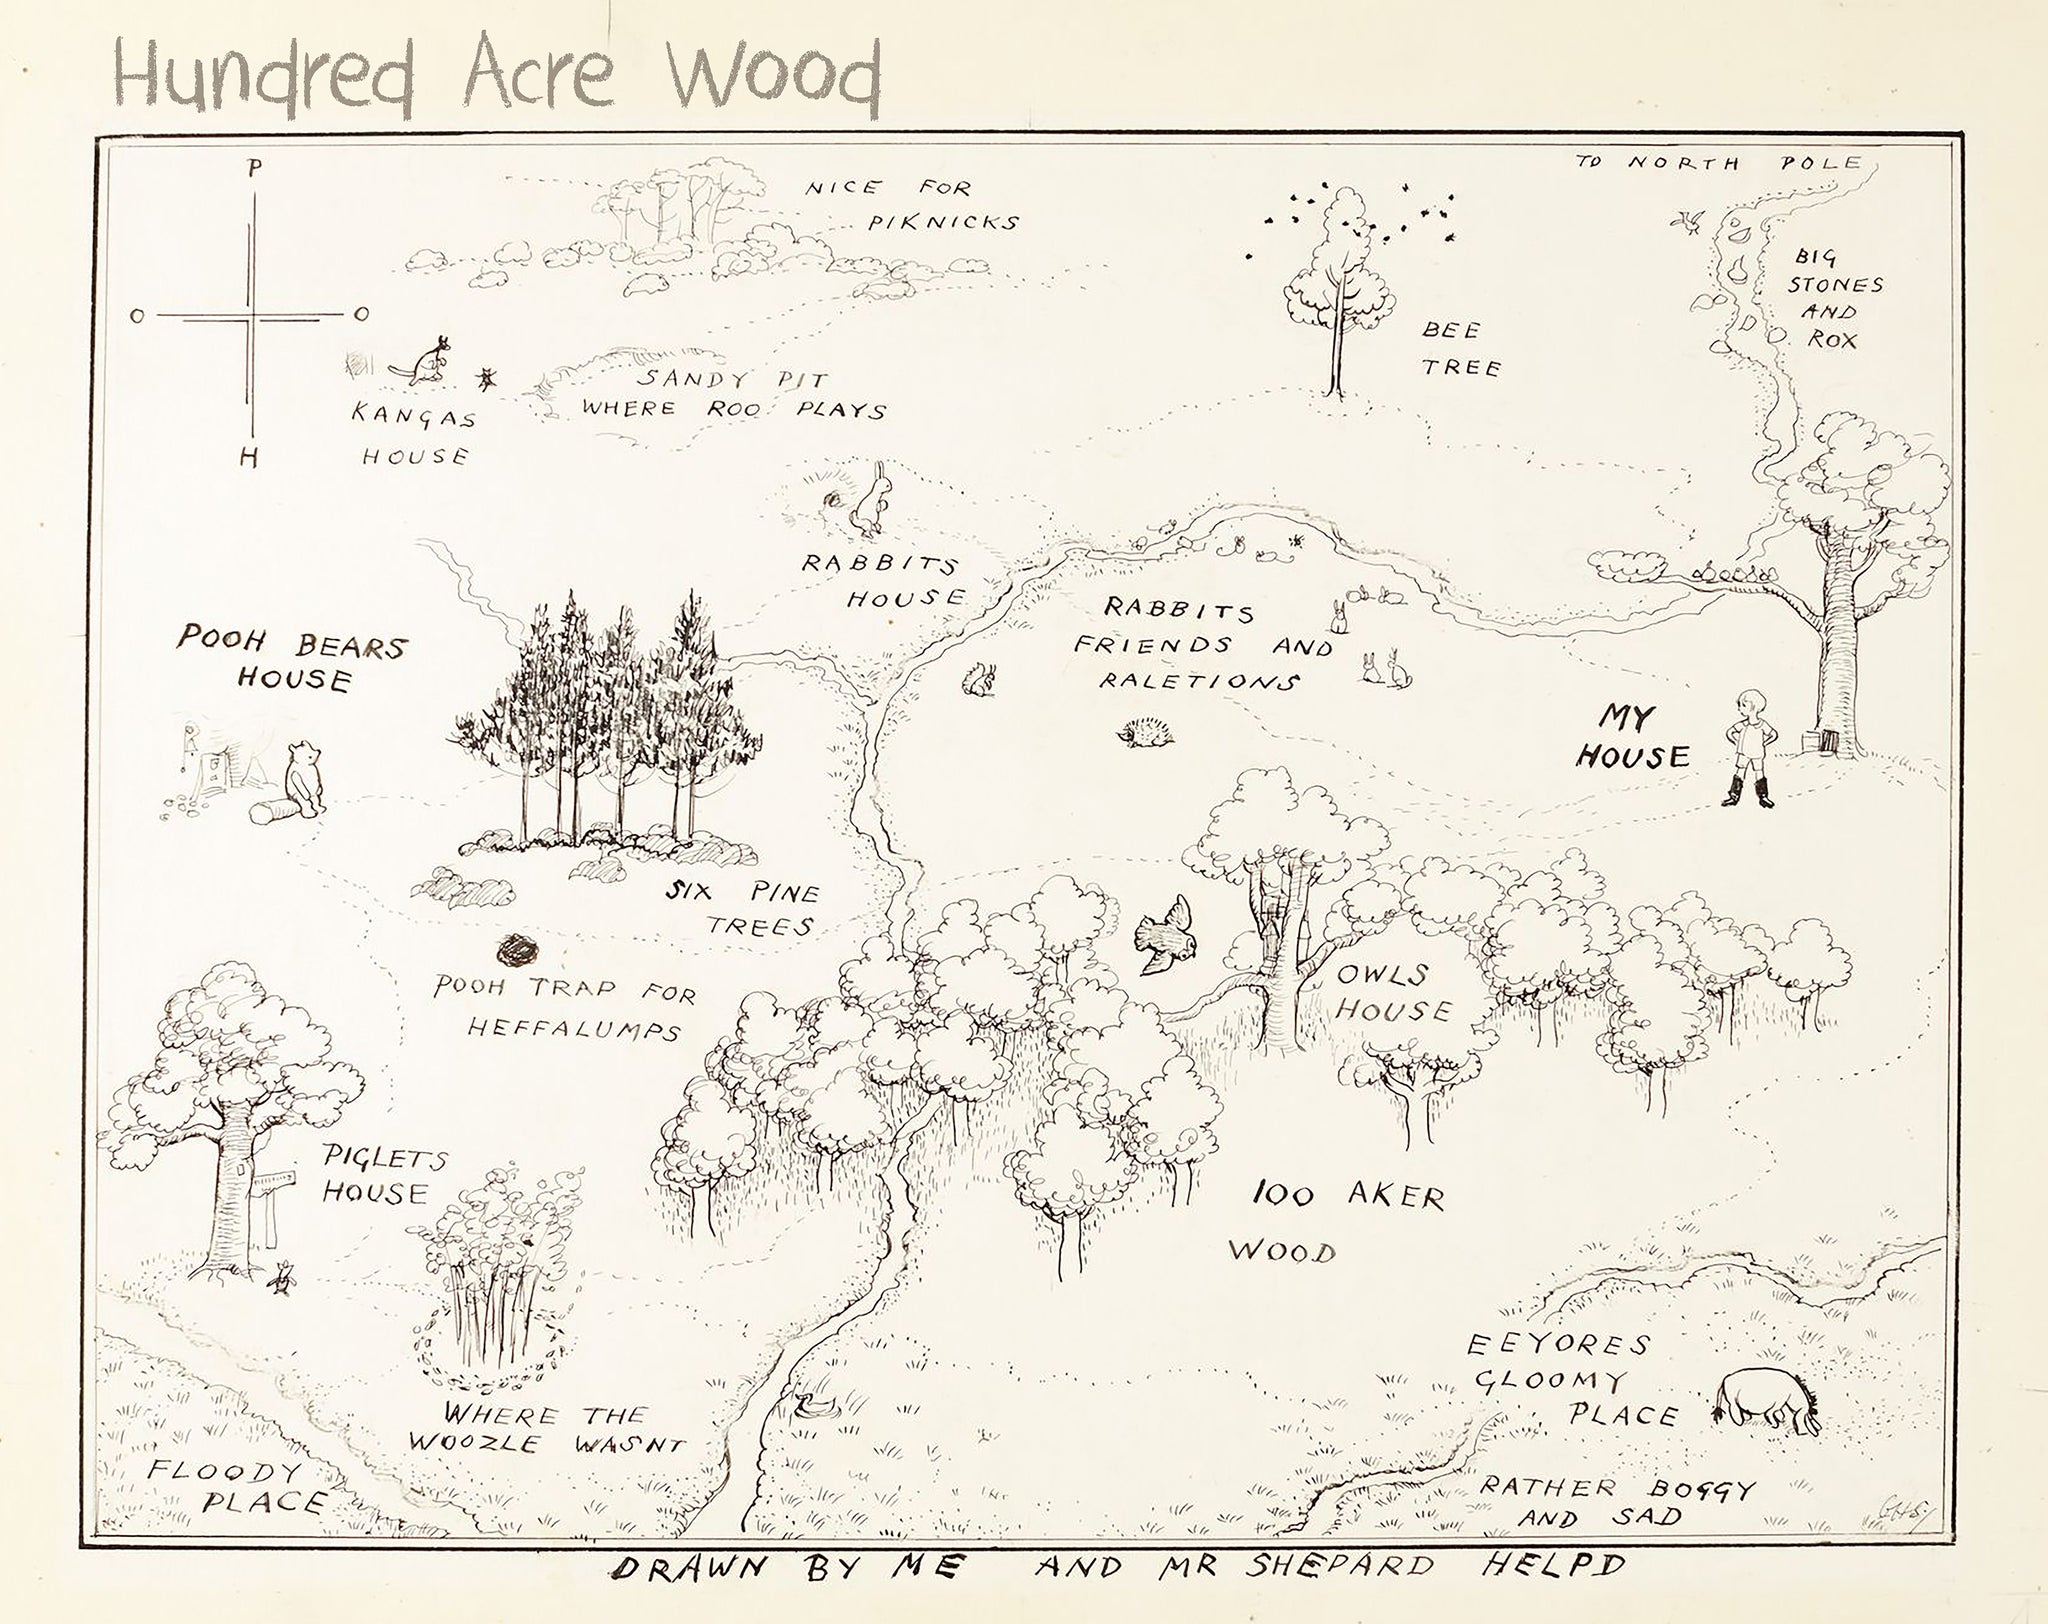 Hundred Acre Wood
P
O
O
H
NICE FOR
PIKNICKS
TO NORTH POLE
BIG
STONES
AND
ROX
BEE
TREE
KANGAS
HOUSE
SANDY PIT
WHERE ROO PLAYS
RABBITS
HOUSE
RABBITS
FRIENDS AND
RALETIONS
POOH BEARS
HOUSE
MY
HOUSE
SIX PINE
TREES
POOH TRAP FOR
HEFFALUMPS
OWLS
HOUSE
PIGLETS
HOUSE
100 AKER
WOOD
WHERE THE
WOOZLE WASNT
EEYORES
GLOOMY
PLACE
FLOODY
PLACE
RATHER BOGGY
AND SAD
DRAWN BY ME AND MR SHEPARD HELPD